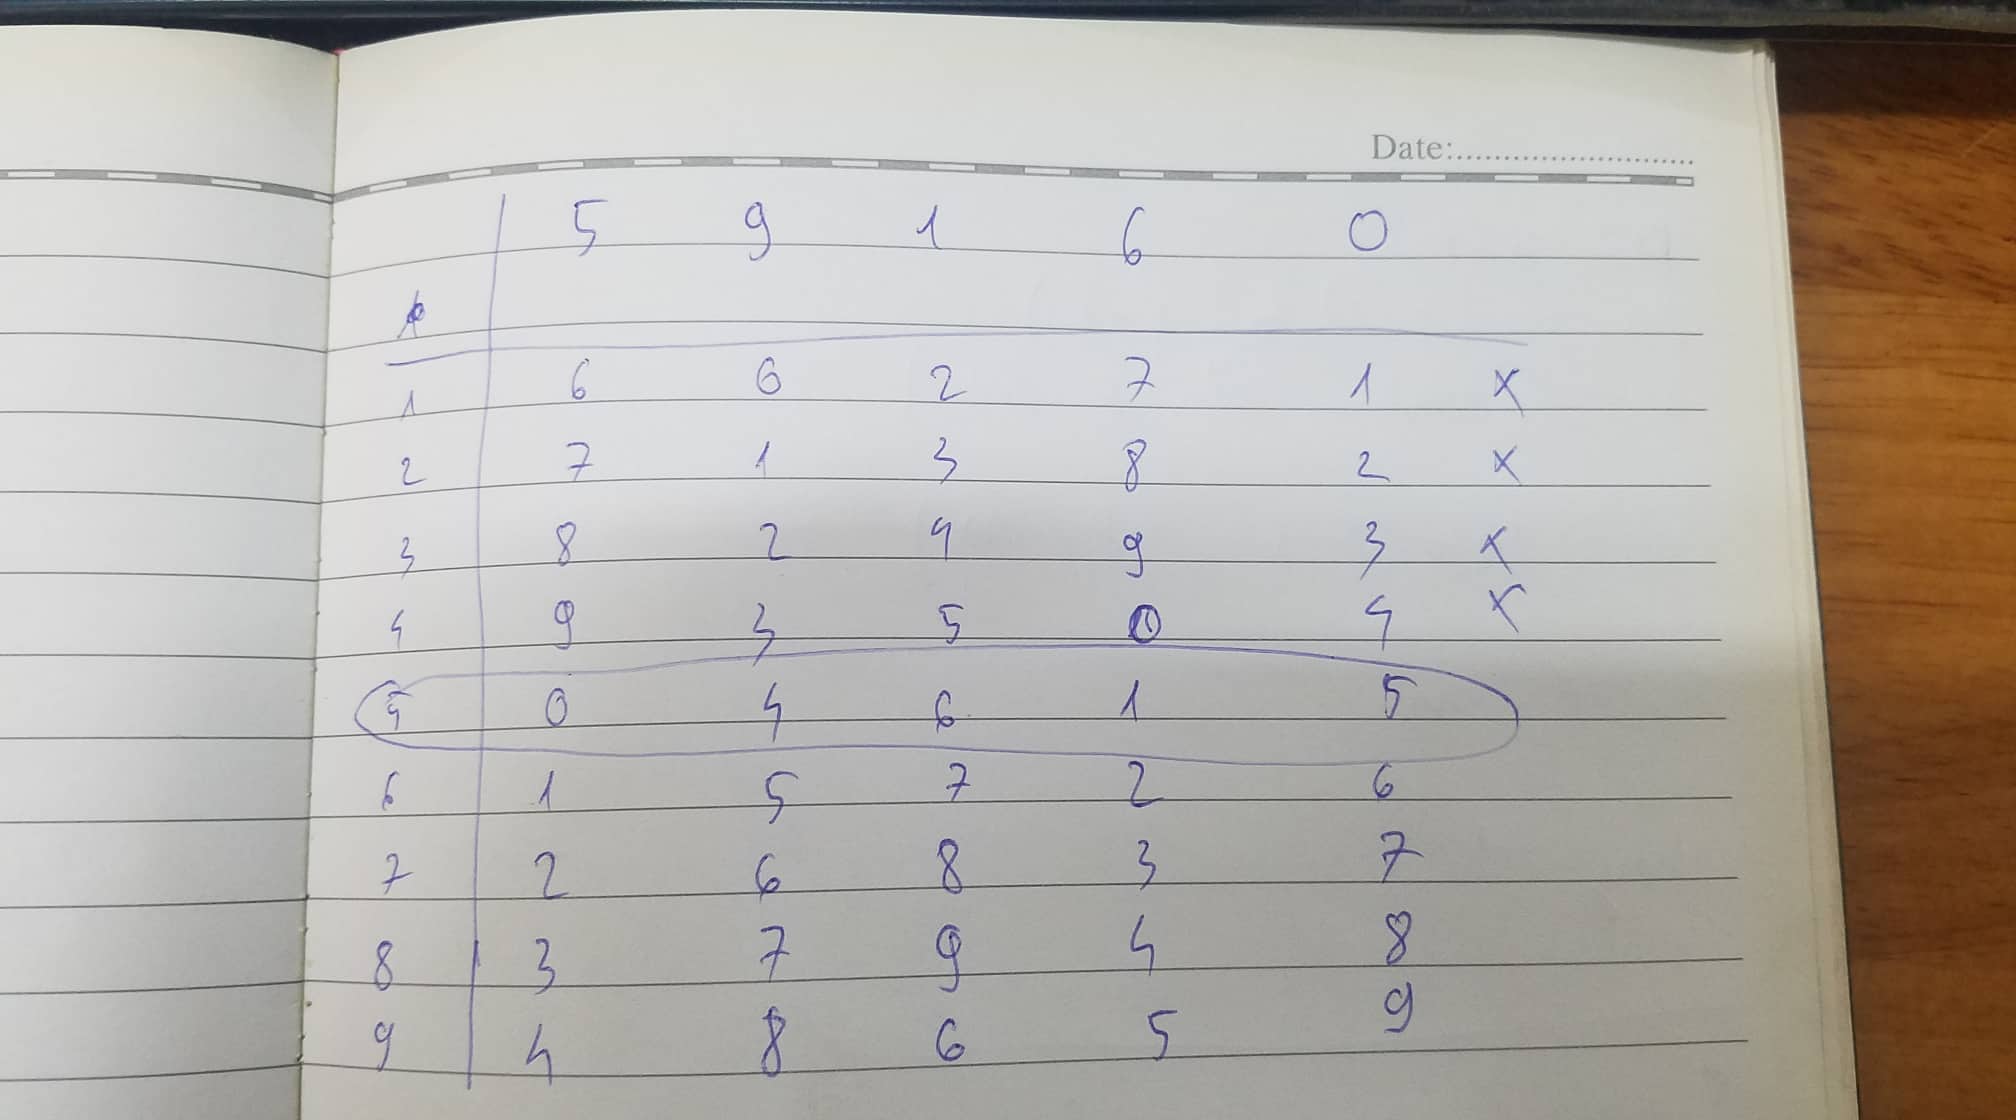 Date:
5 9 1 6 0
1 6 0 2 7 1 x
2 7 1 3 8 2 x
3 8 2 4 9 3 x
4 9 3 5 0 4 x
5 0 4 6 1 5
6 1 5 7 2 6
7 2 6 8 3 7
8 3 7 9 4 8
9 4 8 6 5 9